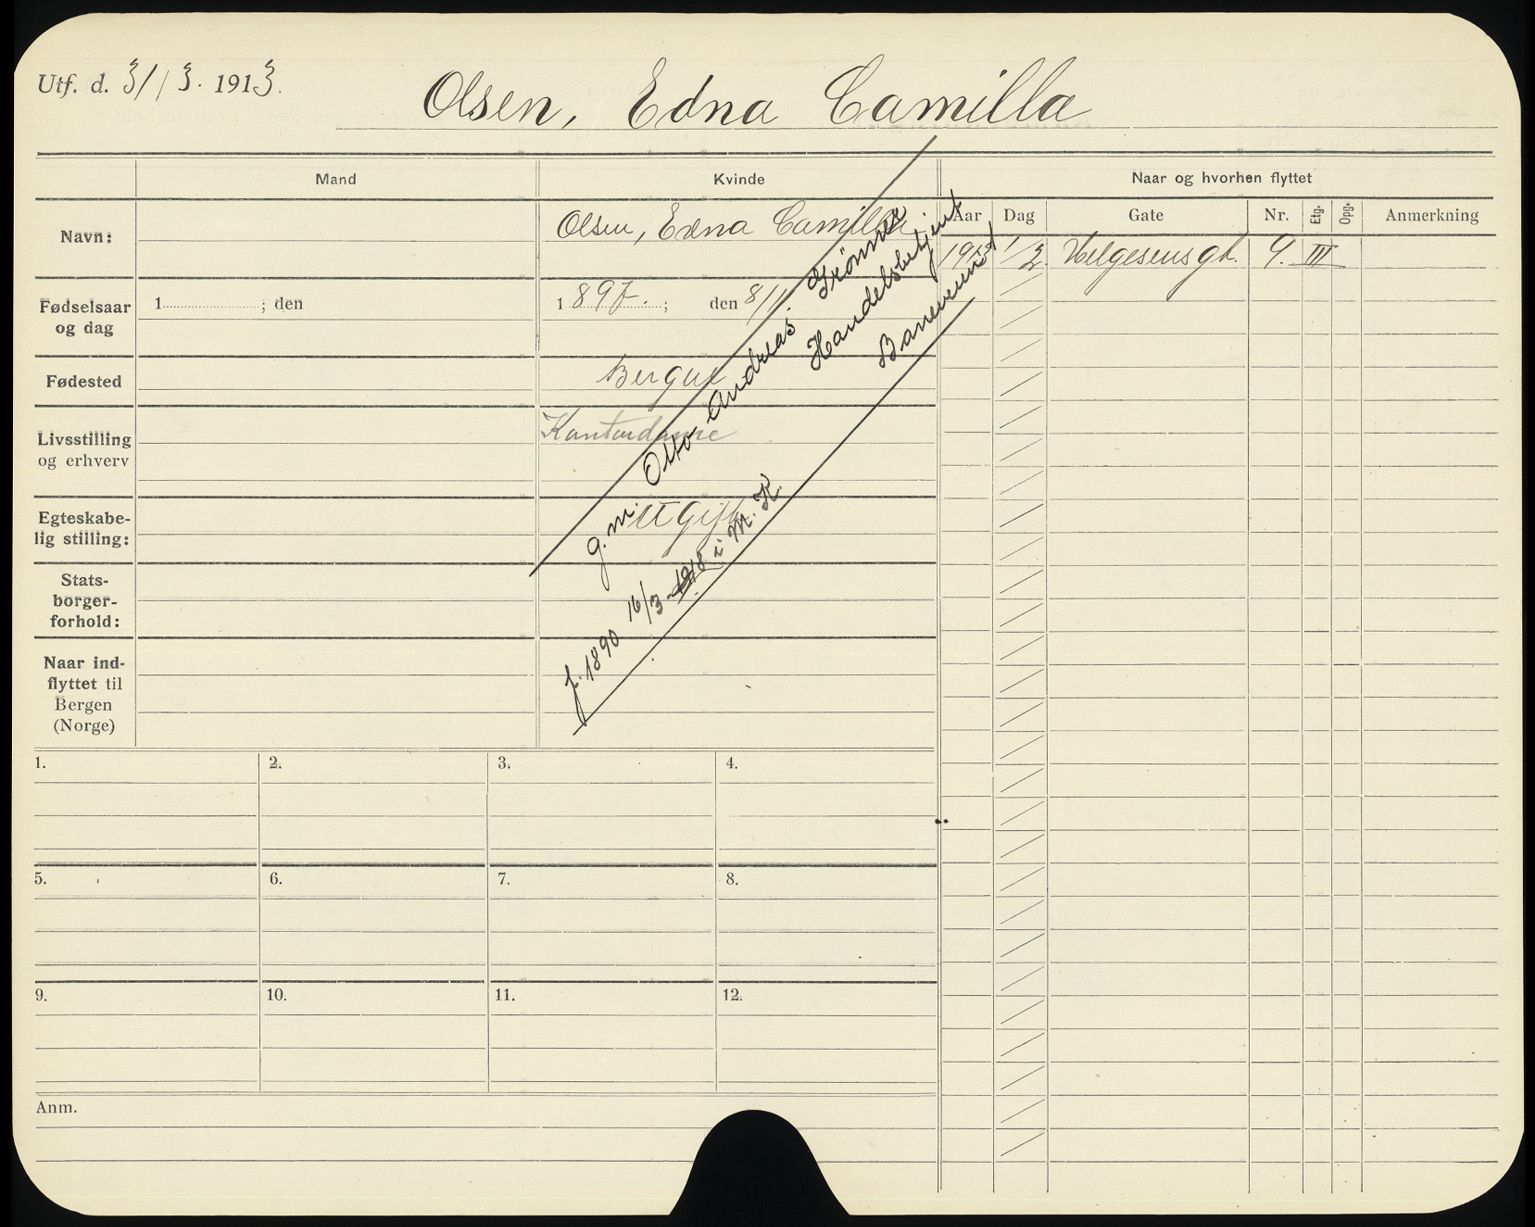 Utf. d. 31/3. 1913.
Olsen, Edna Camilla
Mand
Kvinde
Naar og hvorhen flyttet
Aar
Dag
Gate
Nr.
Etg.
Opg.
Anmerkning
Navn:
Olsen, Edna Camilla
1/2.
Helgesens gt.
9.
III
Fødselsaar
og dag
1 ; den
1897. ; den 8/11
Fødested
Bergen
Livsstilling
og erhverv
Kontordame
Egteskabe-
lig stilling:
Ugift
Stats-
borger-
forhold:
Naar ind-
flyttet til
Bergen
(Norge)
g. m. Otto Andreas Grønner
Handelsbetjent
f. 1890 16/3 1918 i M. K.
1.
2.
3.
4.
5.
6.
7.
8.
9.
10.
11.
12.
Anm.